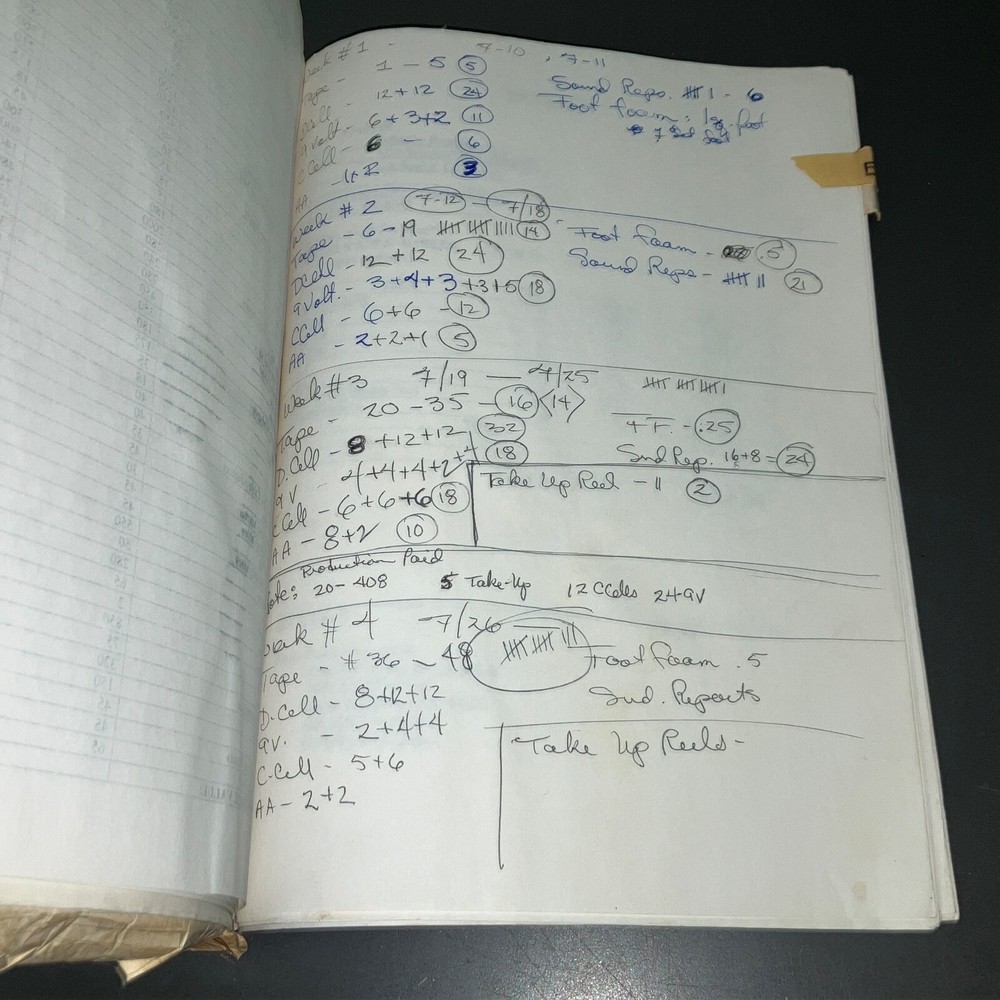 Week #1 - 7-10, 7-11
Tape - 1 - 5 5
DCell - 12+12 24
9 Volt - 6+3+2 11
C Cell - 6 - 6
AA - 1+2 3
Sound Reps. 卌 1 - 6
Foot foam:
Week # 2 7-12 - 7/18
Tape - 6-19 卌 卌 IIII 14
DCell - 12+12 24
9 Volt. - 3+4+3+3+5 18
CCell - 6+6 - 12
AA - 2+2+1 5
Foot foam - .5
Sound Reps - 卌 II 21
Week #3 7/19 - 7/25
Tape - 20-35 - 16 <14>
D.Cell - 8+12+12 32
9V - 4+4+4+2+4 18
C Cell - 6+6+6 18
AA - 8+2 10
卌 卌 卌 I
F.F. - .25
Snd Rep. 16+8=24
Take Up Reel - II 2
Production Paid
Note: 20-408 5 Take-Up 12 CCells 24-9V
Week # 4 7/26
Tape - #36-48 卌 卌 III
D.Cell - 8+12+12
9V. - 2+4+4
C-Cell - 5+6
AA - 2+2
Foot foam .5
Snd. Reports
Take Up Reels-